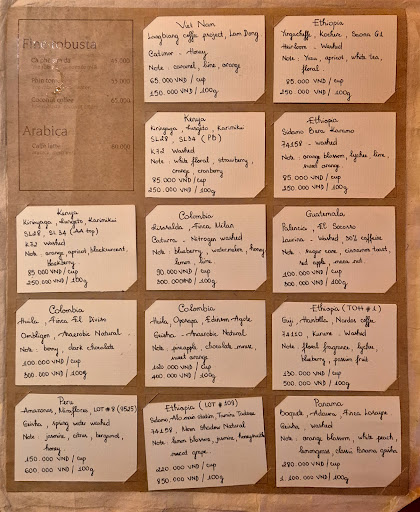 Fine Robusta
65.000
55.000
Coconut coffee
65.000
Arabica
Caffe latte
80.000
Viet Nam
Langbiang coffee project, Lam Dong
Catimor - Honey
Note : caramel, lime, orange
65.000 VND / cup
150.000 VND / 100g
Ethiopia
Yirgacheffe, Kochere, Saona G1
Heirloom - Washed
Note : Yuzu, apricot, white tea,
floral
85.000 VND / cup
250.000 VND / 100g
Kenya
Kirinyaga, Rungeto, Karimikui
SL28, SL34 (PB)
K72 Washed
Note : white floral, strawberry,
orange, cranberry
85.000 VND / cup
250.000 VND / 100g
Ethiopia
Sidamo Bura Karamo
74158 - washed
Note : orange blossom, lychee, lime,
sweet orange
85.000 VND / cup
250.000 VND / 100g
Kenya
Kirinyaga, Rungeto Karimikui
SL28, SL 34 (AA top)
K72 washed
Note : orange, apricot, blackcurrant,
blackberry
85.000 VND / cup
250.000 VND / 100g
Colombia
Risaralda, Finca Milan
Caturra - Nitrogen washed
Note : blueberry, watermelon, honey
lemon, lime
90.000 VND / cup
300.000 VND / 100g
Guatemala
Palencia, El Socorro
Laurina - Washed 50% caffeine
Note : sugar cane, cinnamon toast,
red apple, maca nut
100.000 VND / cup
300.000 VND / 100g
Colombia
Huila, Finca El Diviso
Ombligon - Anaerobic Natural
Note : berry, dark chocolate
100.000 VND / cup
300.000 VND / 100g
Colombia
Huila, Oporapa, Edinson Argote
Geisha - Anaerobic Natural
Note : pineapple, chocolate mousse,
sweet orange
120.000 VND / cup
400.000 VND / 100g
Ethiopia (TOH #1)
Guji, Hambella, Nardos coffee
74110, Kurume - Washed
Note : floral fragrance, lychee,
blueberry, passion fruit
130.000 VND / cup
500.000 VND / 100g
Peru
Amazonas, Miraflores, LOT #8 (9525)
Geisha, spring water washed
Note : jasmine, citrus, bergamot,
honey
150.000 VND / cup
600.000 VND / 100g
Ethiopia (LOT #109)
Sidamo, Alo coffee station, Tamiru Tadesse
74158, Moon Shadow Natural
Note : lemon blossoms, jasmine, honeysuckle
muscat grape
220.000 VND / cup
850.000 VND / 100g
Panama
Boquete, Adaura, Finca
Geisha, washed
Note : orange blossom, white peach,
lemongrass, classic Panama geisha
280.000 VND / cup
1.100.000 VND / 100g